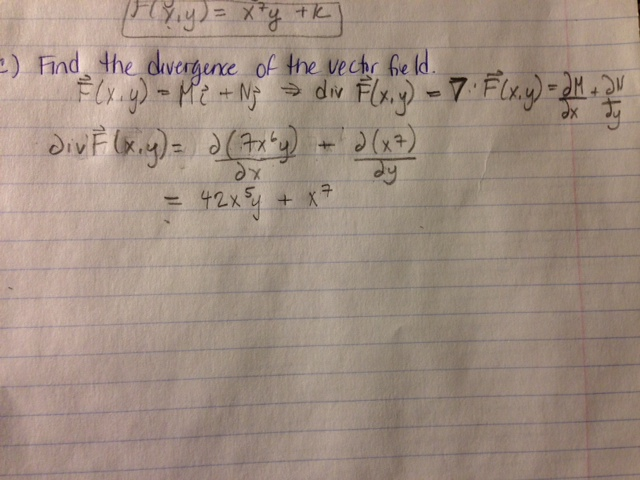 f(x,y) = x⁷y + K
c) Find the divergence of the vector field.
F⃗(x,y) = Mi⃗ + Nj⃗ ⇒ div F⃗(x,y) = ∇·F⃗(x,y) = ∂M/∂x + ∂N/∂y
div F⃗(x,y) = ∂(7x⁶y)/∂x + ∂(x⁷)/∂y
= 42x⁵y + x⁷